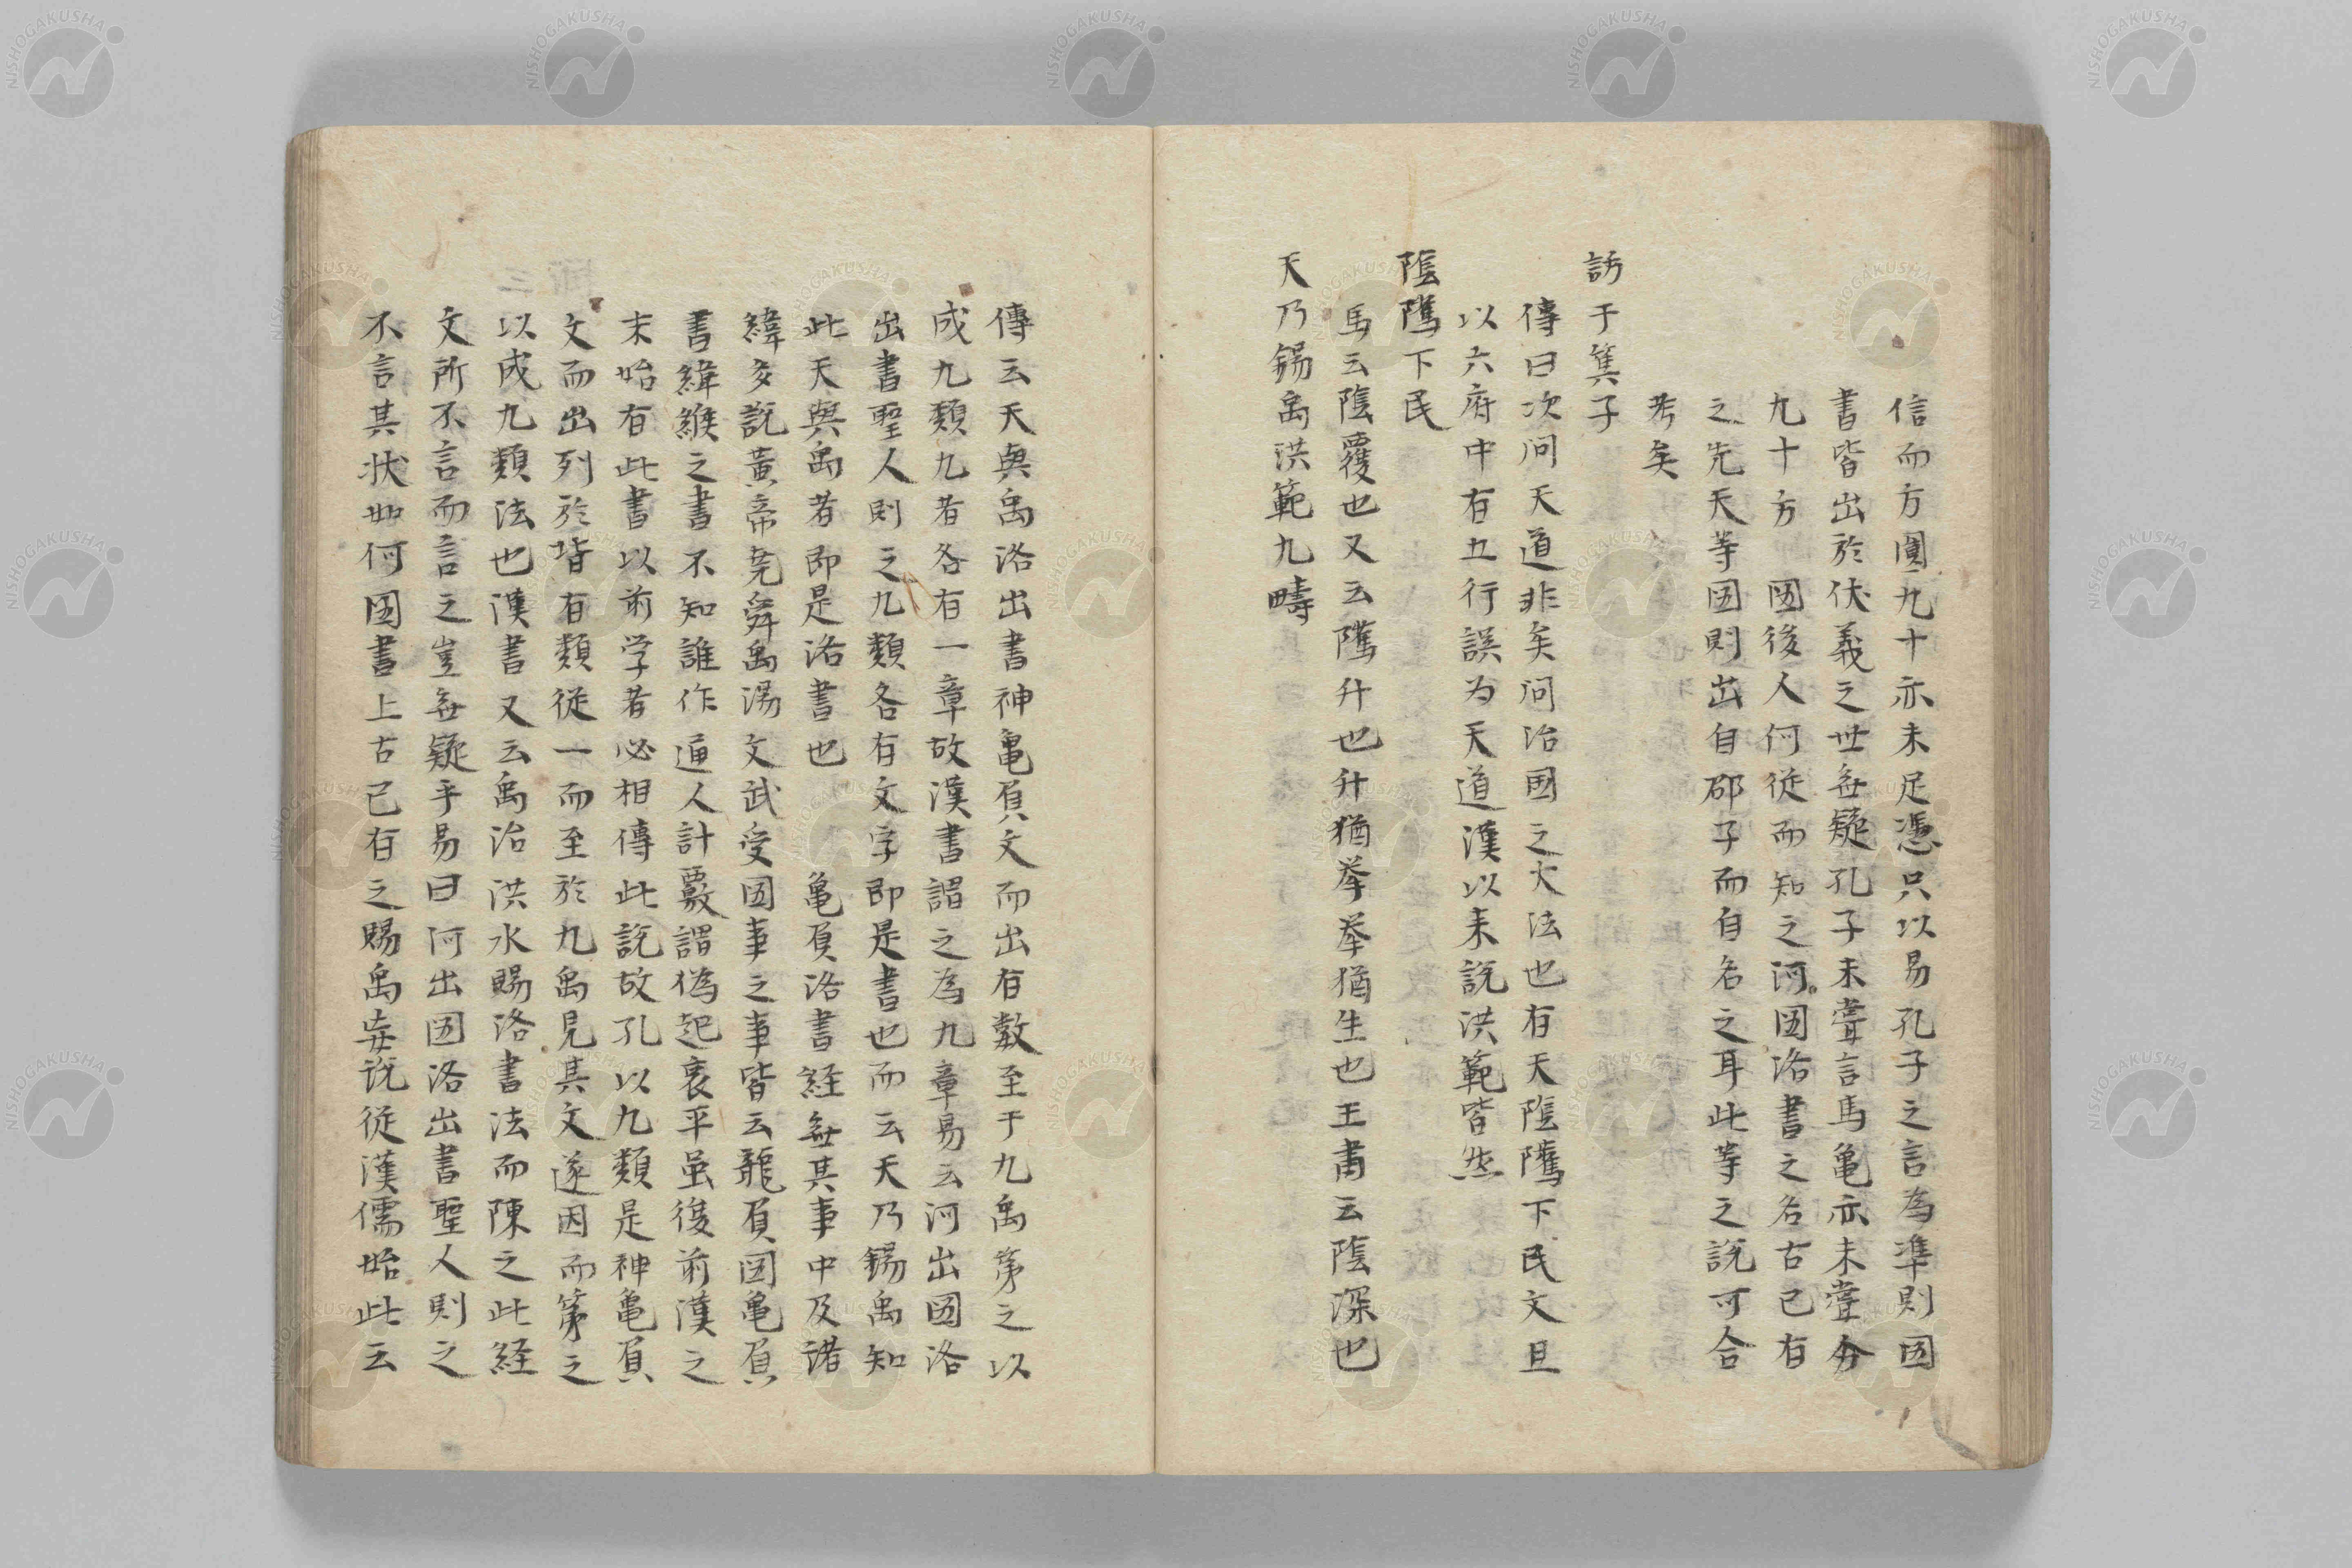 信而方圓九十亦未足憑只以易孔子之言為準則図
書皆出於伏羲之世無疑孔子未嘗言馬亀亦未嘗分
九十方 図後人何従而知之河図洛書之名古已有
之先天等図則出自邵子而自名之耳此等之説可合
考矣
訪于箕子
傳曰次問天道非矣問治國之大法也有天陰隲下民文且
以六府中有五行誤为天道漢以来説洪範皆然
陰隲下民
馬云陰覆也又云隲升也升猶挙挙猶生也王肅云陰深也
天乃錫禹洪範九疇
傳云天與禹洛出書神亀負文而出有数至于九禹第之以
成九類九者各有一章故漢書謂之為九章易云河出図洛
出書聖人則之九類各有文字即是書也而云天乃錫禹知
此天與禹者即是洛書也 亀負洛書経無其事中及諸
緯多説黄帝尭舜禹湯文武受図事之事皆云龍負図亀負
書緯候之書不知誰作通人計覈謂偽起哀平虽復前漢之
末始有此書以前学者必相傳此説故孔以九類是神亀負
文而出列於背有類従一而至於九禹見其文遂因而第之
以成九類法也漢書又云禹治洪水賜洛書法而陳之此経
文所不言而言之豈無疑乎易曰河出図洛出書聖人則之
不言其状如何図書上古已有之賜禹妄説従漢儒始此云
NISHOGAKUSHA